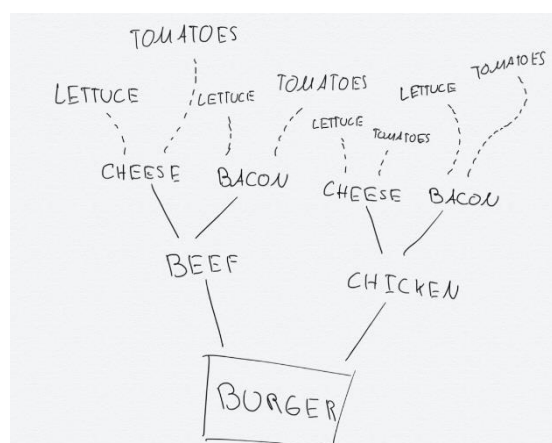 TOMATOES
LETTUCE
LETTUCE
TOMATOES
LETTUCE
TOMATOES
LETTUCE
TOMATOES
CHEESE
BACON
CHEESE
BACON
BEEF
CHICKEN
BURGER